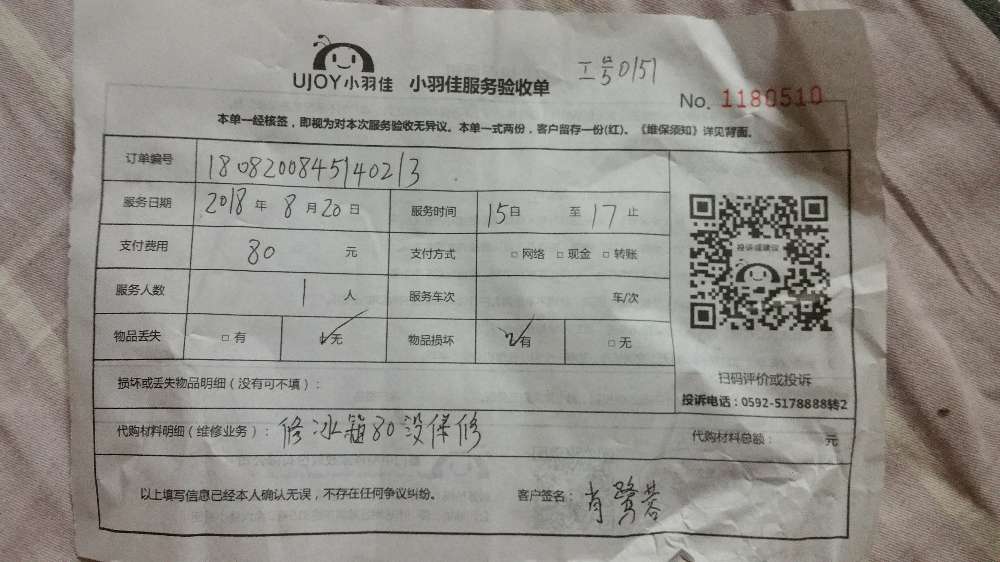 UJOY小羽佳 小羽佳服务验收单 工号0151
No. 1180510
本单一经核签，即视为对本次服务验收无异议。本单一式两份，客户留存一份(红)。《维保须知》详见背面。
订单编号 1808200845140213
服务日期 2018 年 8 月 20 日 服务时间 15日 至 17 止
支付费用 80 元 支付方式 □ 网络 □ 现金 □ 转账
投诉或建议
服务人数 1 人 服务车次 车/次
物品丢失 □ 有 ☑无 物品损坏 ☑有 □ 无
损坏或丢失物品明细（没有可不填）：
扫码评价或投诉
投诉电话：0592-5178888转2
代购材料明细（维修业务）： 修冰箱80没保修 代购材料总额： 元
以上填写信息已经本人确认无误，不存在任何争议纠纷。 客户签名： 肖鹭蓉